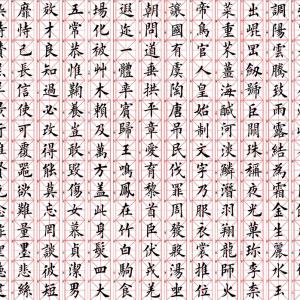 調陽雲騰致雨露結為霜金生麗水玉
出崐岡劒號巨闕珠稱夜光菓珍李柰
菜重芥薑海鹹河淡鱗潛羽翔龍師火
帝鳥官人皇始制文字乃服衣裳推位
讓國有虞陶唐弔民伐罪周發殷湯坐
朝問道垂拱平章愛育黎首臣伏戎羌
遐邇一體率賓歸王鳴鳳在竹白駒食
場化被艸木賴及萬方蓋此身髮四大
五常恭惟鞠養豈敢毀傷女慕貞潔男
效才良知過必改得能莫忘罔談彼短
靡恃己長信使可覆器欲難量墨悲絲